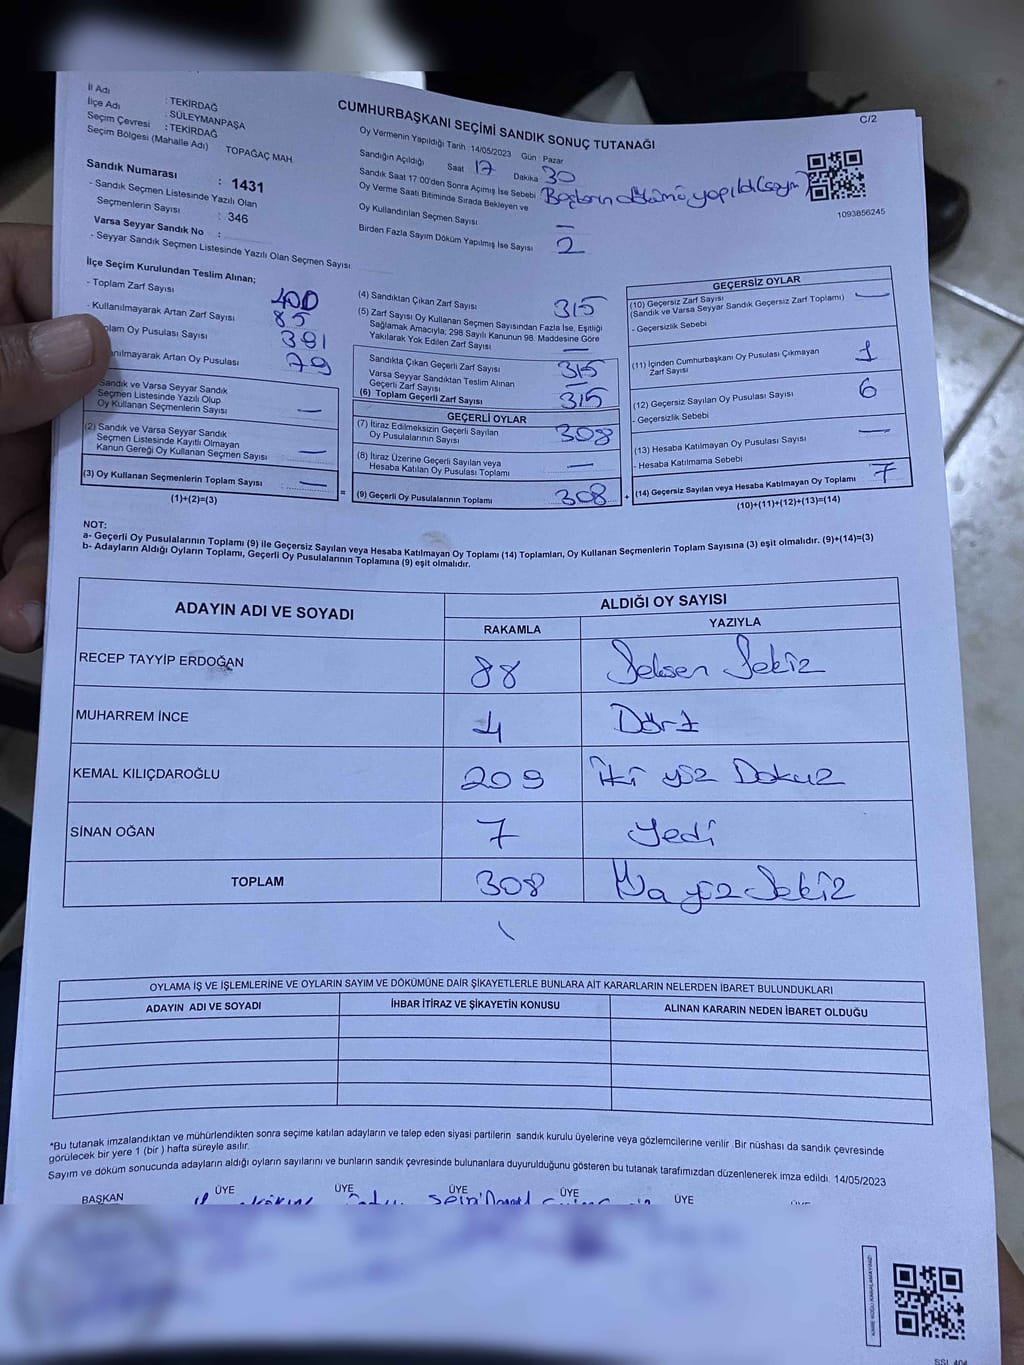 CUMHURBAŞKANI SEÇİMİ SANDIK SONUÇ TUTANAĞI
C/2
İl Adı : TEKİRDAĞ
İlçe Adı : SÜLEYMANPAŞA
Seçim Çevresi : TEKİRDAĞ
Seçim Bölgesi (Mahalle Adı) TOPAĞAÇ MAH.
Sandık Numarası : 1431
- Sandık Seçmen Listesinde Yazılı Olan
Seçmenlerin Sayısı : 346
Varsa Seyyar Sandık No :
- Seyyar Sandık Seçmen Listesinde Yazılı Olan Seçmen Sayısı
Oy Vermenin Yapıldığı Tarih :14/05/2023 Gün Pazar
Sandığın Açıldığı Saat 17 Dakika 30
Sandık Saat 17:00'den Sonra Açımış İse Sebebi
Oy Verme Saati Bitiminde Sırada Bekleyen ve
Oy Kullandırılan Seçmen Sayısı —
Birden Fazla Sayım Döküm Yapılmış İse Sayısı 2
1093856245
İlçe Seçim Kurulundan Teslim Alınan;
- Toplam Zarf Sayısı 400
- Kullanılmayarak Artan Zarf Sayısı 85
plam Oy Pusulası Sayısı 381
anılmayarak Artan Oy Pusulası 79
Sandık ve Varsa Seyyar Sandık
Seçmen Listesinde Yazılı Olup
Oy Kullanan Seçmenlerin Sayısı —
(2) Sandık ve Varsa Seyyar Sandık
Seçmen Listesinde Kayıtlı Olmayan
Kanun Gereği Oy Kullanan Seçmen Sayısı —
(3) Oy Kullanan Seçmenlerin Toplam Sayısı : —
(1)+(2)=(3)
=
(4) Sandıktan Çıkan Zarf Sayısı 315
(5) Zarf Sayısı Oy Kullanan Seçmen Sayısından Fazla İse, Eşitliği
Sağlamak Amacıyla; 298 Sayılı Kanunun 98. Maddesine Göre
Yakılarak Yok Edilen Zarf Sayısı —
Sandıkta Çıkan Geçerli Zarf Sayısı 315
Varsa Seyyar Sandıktan Teslim Alınan
Geçerli Zarf Sayısı —
(6) Toplam Geçerli Zarf Sayısı 315
GEÇERLİ OYLAR
(7) İtiraz Edilmeksizin Geçerli Sayılan
Oy Pusulalarının Sayısı 308
(8) İtiraz Üzerine Geçerli Sayılan veya
Hesaba Katılan Oy Pusulası Toplamı —
(9) Geçerli Oy Pusulalarının Toplamı 308
+
GEÇERSİZ OYLAR
(10) Geçersiz Zarf Sayısı
(Sandık ve Varsa Seyyar Sandık Geçersiz Zarf Toplamı) —
- Geçersizlik Sebebi
(11) İçinden Cumhurbaşkanı Oy Pusulası Çıkmayan
Zarf Sayısı 1
(12) Geçersiz Sayılan Oy Pusulası Sayısı 6
- Geçersizlik Sebebi
(13) Hesaba Katılmayan Oy Pusulası Sayısı —
- Hesaba Katılmama Sebebi
(14) Geçersiz Sayılan veya Hesaba Katılmayan Oy Toplamı 7
(10)+(11)+(12)+(13)=(14)
NOT:
a- Geçerli Oy Pusulalarının Toplamı (9) ile Geçersiz Sayılan veya Hesaba Katılmayan Oy Toplamı (14) Toplamları, Oy Kullanan Seçmenlerin Toplam Sayısına (3) eşit olmalıdır. (9)+(14)=(3)
b- Adayların Aldığı Oyların Toplamı, Geçerli Oy Pusulalarının Toplamına (9) eşit olmalıdır.
ADAYIN ADI VE SOYADI ALDIĞI OY SAYISI
RAKAMLA YAZIYLA
RECEP TAYYİP ERDOĞAN 88 Seksen Sekiz
MUHARREM İNCE 4 Dört
KEMAL KILIÇDAROĞLU 209 İki yüz Dokuz
SİNAN OĞAN 7 Yedi
TOPLAM 308 yüz Sekiz
OYLAMA İŞ VE İŞLEMLERİNE VE OYLARIN SAYIM VE DÖKÜMÜNE DAİR ŞİKAYETLERLE BUNLARA AİT KARARLARIN NELERDEN İBARET BULUNDUKLARI
ADAYIN ADI VE SOYADI İHBAR İTİRAZ VE ŞİKAYETİN KONUSU ALINAN KARARIN NEDEN İBARET OLDUĞU
*Bu tutanak imzalandıktan ve mühürlendikten sonra seçime katılan adayların ve talep eden siyasi partilerin sandık kurulu üyelerine veya gözlemcilerine verilir. Bir nüshası da sandık çevresinde
görülecek bir yere 1 (bir) hafta süreyle asılır.
Sayım ve döküm sonucunda adayların aldığı oyların sayılarını ve bunların sandık çevresinde bulunanlara duyurulduğunu gösteren bu tutanak tarafımızdan düzenlenerek imza edildi. 14/05/2023
BAŞKAN ÜYE ÜYE ÜYE ÜYE ÜYE